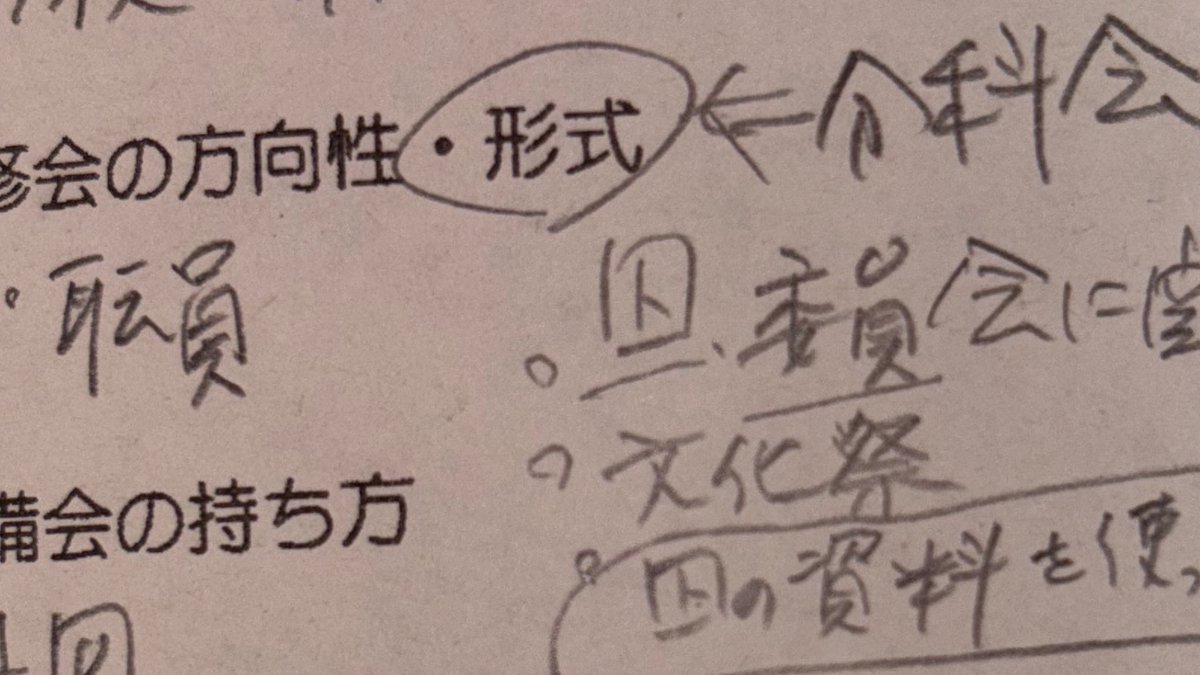 修会の方向性・形式 ← 分科会
・耺員
。 、委員会に
。文化祭
備会の持ち方
。 の資料を使っ
回